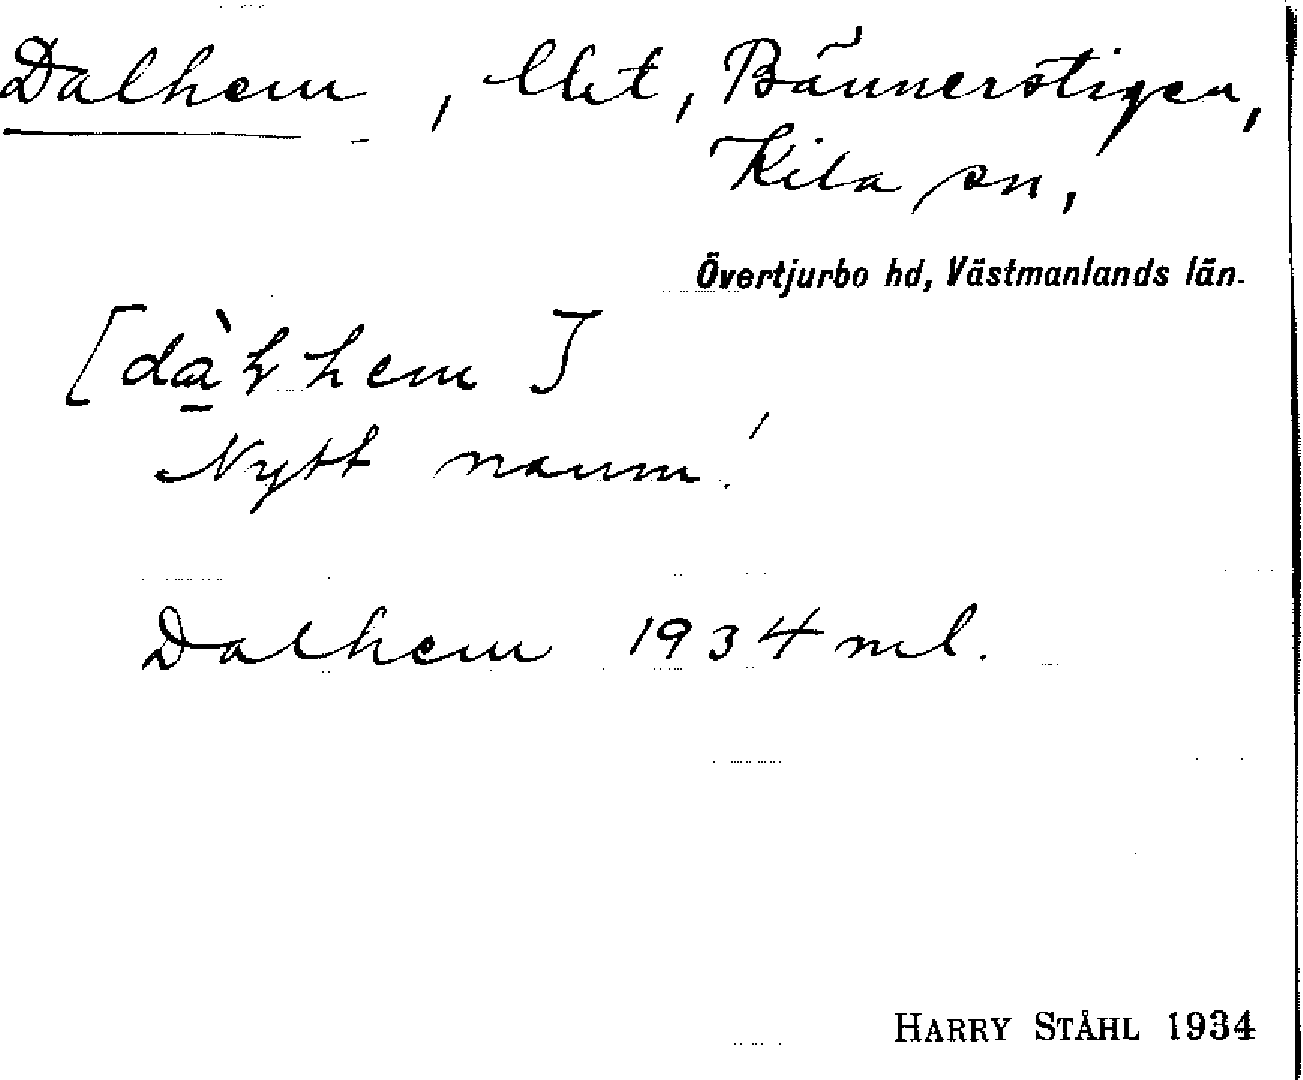 Dalhem, lht, Bännerstigen,
Kila sn,
Övertjurbo hd, Västmanlands län.
[dàɫhem]
Nytt namn!
Dalhem 1934 ml.
HARRY STÅHL 1934